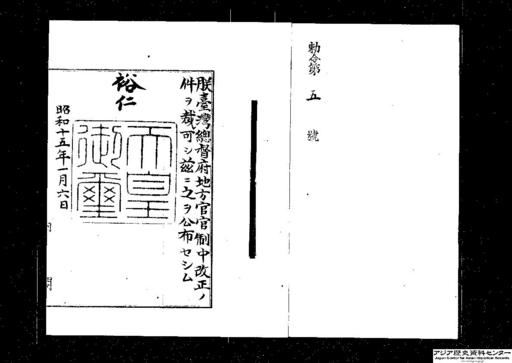 勅令第五號
朕臺灣總督府地方官官制中改正ノ
件ヲ裁可シ茲ニ之ヲ公布セシム
裕仁
天皇
御璽
昭和十五年一月六日
アジア歴史資料センター
Japan Center for Asian Historical Records